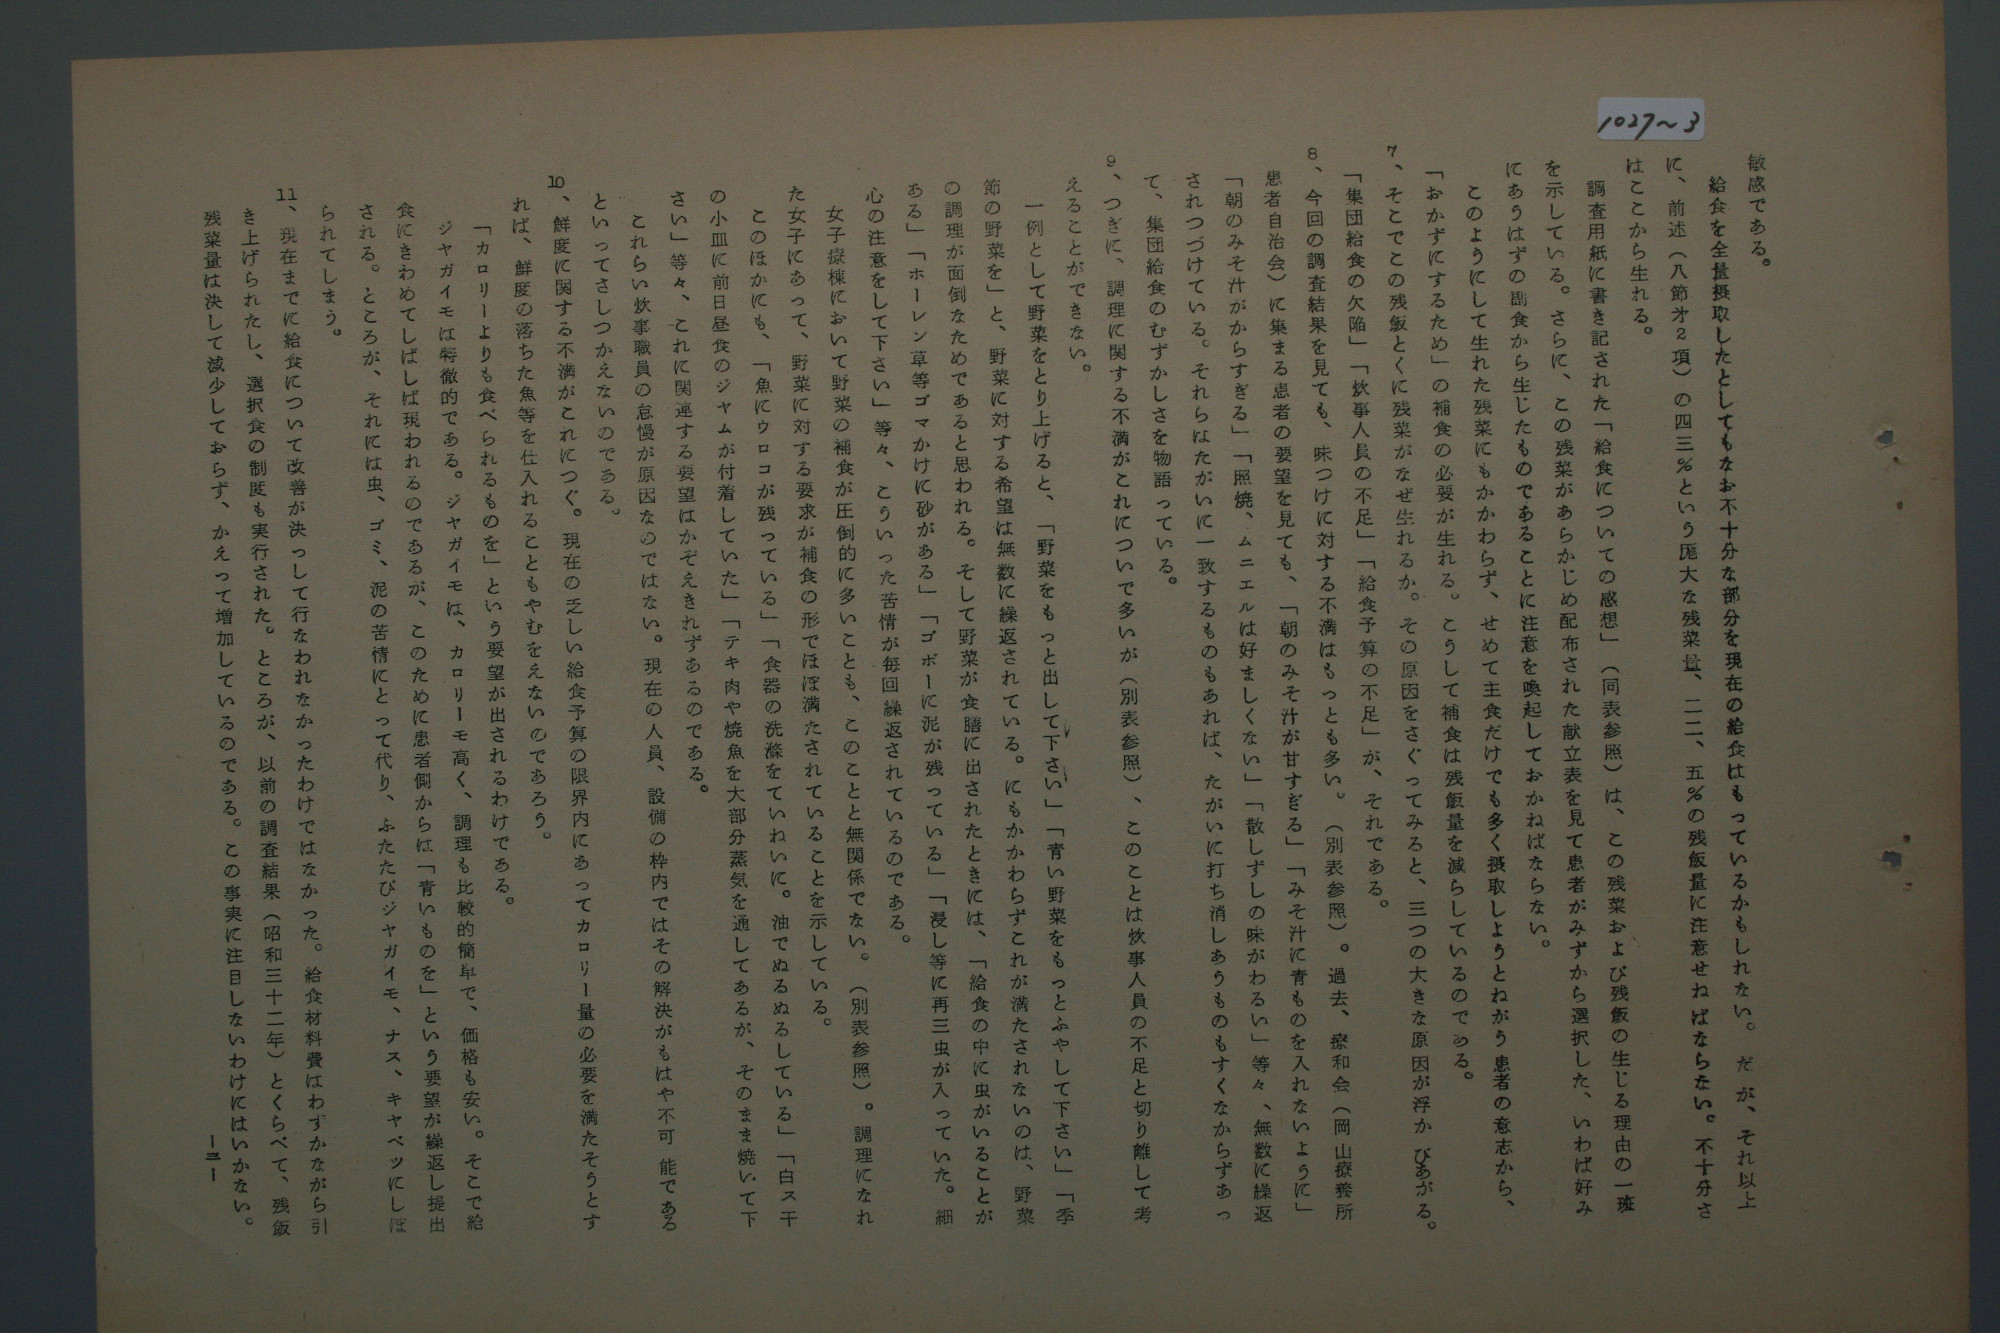 1027～3
敏感である。
給食を全量摂取したとしてもなお不十分な部分を現在の給食はもっているかもしれない。だが、それ以上
に、前述（八節才2項）の四三％という厖大な残菜量、二二、五％の残飯量に注意せねばならない。不十分さ
はここから生れる。
調査用紙に書き記された「給食についての感想」（同表参照）は、この残菜および残飯の生じる理由の一斑
を示している。さらに、この残菜があらかじめ配布された献立表を見て患者がみずから選択した、いわば好み
にあうはずの副食から生じたものであることに注意を喚起しておかねばならない。
このようにして生れた残菜にもかかわらず、せめて主食だけでも多く摂取しようとねがう患者の意志から、
「おかずにするため」の補食の必要が生れる。こうして補食は残飯量を減らしているのである。
7、そこでこの残飯とくに残菜がなぜ生れるか。その原因をさぐってみると、三つの大きな原因が浮かびあがる。
「集団給食の欠陥」「炊事人員の不足」「給食予算の不足」が、それである。
8、今回の調査結果を見ても、味つけに対する不満はもっとも多い。（別表参照）。過去、療和会（岡山療養所
患者自治会）に集まる患者の要望を見ても、「朝のみそ汁が甘すぎる」「みそ汁に青ものを入れないように」
「朝のみそ汁がからすぎる」「照焼、ムニエルは好ましくない」「散しずしの味がわるい」等々、無数に繰返
されつづけている。それらはたがいに一致するものもあれば、たがいに打ち消しあうものもすくなからずあっ
て、集団給食のむずかしさを物語っている。
9、つぎに、調理に関する不満がこれについで多いが（別表参照）、このことは炊事人員の不足と切り離して考
えることができない。
一例として野菜をとり上げると、「野菜をもっと出して下さい」「青い野菜をもっとふやして下さい」「季
節の野菜を」と、野菜に対する希望は無数に繰返されている。にもかかわらずこれが満たされないのは、野菜
の調理が面倒なためであると思われる。そして野菜が食膳に出されたときには、「給食の中に虫がいることが
ある」「ホーレン草等ゴマかけに砂がある」「ゴボーに泥が残っている」「浸し等に再三虫が入っていた。細
心の注意をして下さい」等々、こういった苦情が毎回繰返されているのである。
女子療棟において野菜の補食が圧倒的に多いことも、このことと無関係でない。（別表参照）。調理になれ
た女子にあって、野菜に対する要求が補食の形でほぼ満たされていることを示している。
このほかにも、「魚にウロコが残っている」「食器の洗滌をていねいに。油でぬるぬるしている」「白ス干
の小皿に前日昼食のジヤムが付着していた」「テキ肉や焼魚を大部分蒸気を通してあるが、そのまま焼いて下
さい」等々、これに関連する要望はかぞえきれずあるのである。
これらい炊事職員の怠慢が原因なのではない。現在の人員、設備の枠内ではその解決がもはや不可能である
といってさしつかえないのである。
10、鮮度に関する不満がこれにつぐ。現在の乏しい給食予算の限界内にあってカロリー量の必要を満たそうとす
れば、鮮度の落ちた魚等を仕入れることもやむをえないのであろう。
「カロリーよりも食べられるものを」という要望が出されるわけである。
ジヤガイモは特徹的である。ジヤガイモは、カロリーモ高く、調理も比較的簡単で、価格も安い。そこで給
食にきわめてしばしば現われるのであるが、このために患者側からは「青いものを」という要望が繰返し提出
される。ところが、それには虫、ゴミ、泥の苦情にとって代り、ふたたびジヤガイモ、ナス、キヤベツにしぼ
られてしまう。
11、現在までに給食について改善が決っして行なわれなかったわけではなかった。給食材料費はわずかながら引
き上げられたし、選択食の制度も実行された。ところが、以前の調査結果（昭和三十二年）とくらべて、残飯
残菜量は決して減少しておらず、かえって増加しているのである。この事実に注目しないわけにはいかない。
ー三ー